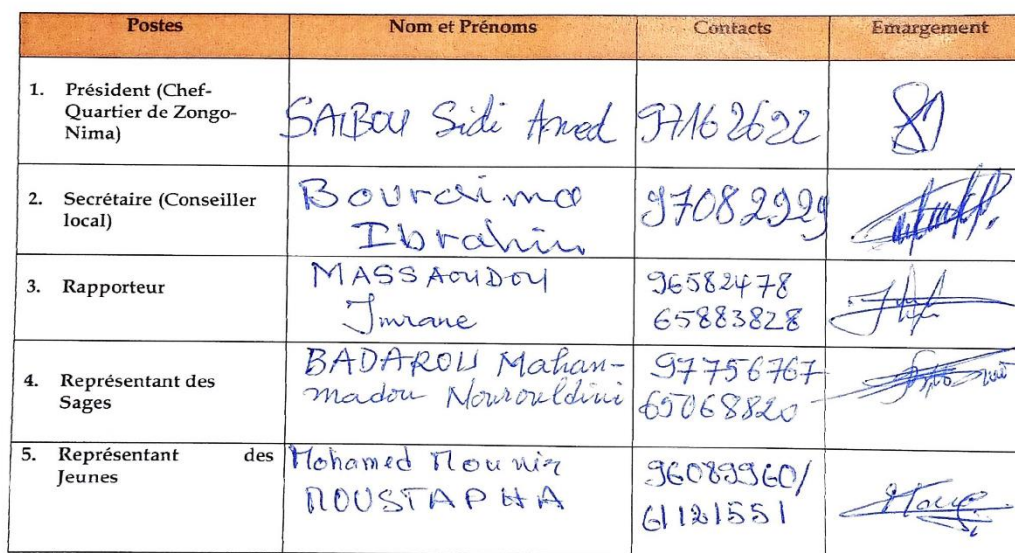 Postes Nom et Prénoms Contacts Emargement
1. Président (Chef-
Quartier de Zongo-
Nima)
SAIBOU Sidi Amed 97162622
2. Secrétaire (Conseiller
local)
Bouraima
Ibrahim
97082929
3. Rapporteur
MASSAOUDOU
Imrane
96582478
65883828
4. Représentant des
Sages
BADAROU Mahan-
madou Nourouldini
97756767
65068820
5. Représentant des
Jeunes
Mohamed Mounir
MOUSTAPHA
96089960/
61121551